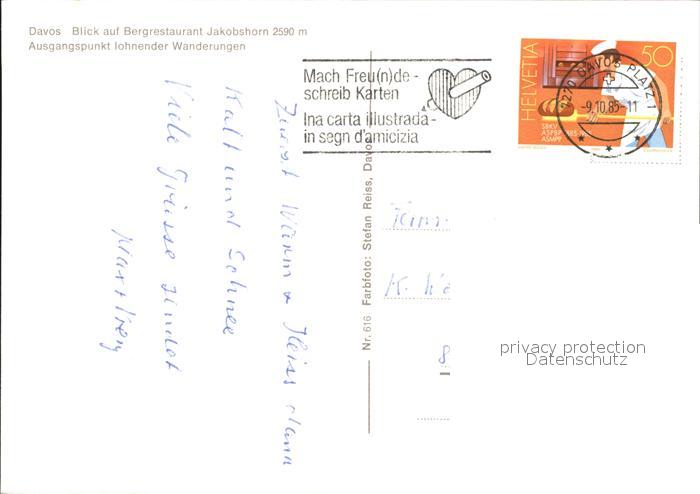 Davos Blick auf Bergrestaurant Jakobshorn 2590 m
Ausgangspunkt lohnender Wanderungen
Mach Freu(n)de -
schreib Karten
Ina carta illustrada -
in segn d'amicizia
HELVETIA
50
7270 DAVOS PLATZ 1
-9.10.85-11
SBKV
ASPBP 1885-1985
ASMPP
Zuerst Warm u Heiss dann
Kalt und Schnee
Viele Grüsse sendet
Nr. 616 Farbfoto: Stefan Reiss, Davos
8
privacy protection
Datenschutz